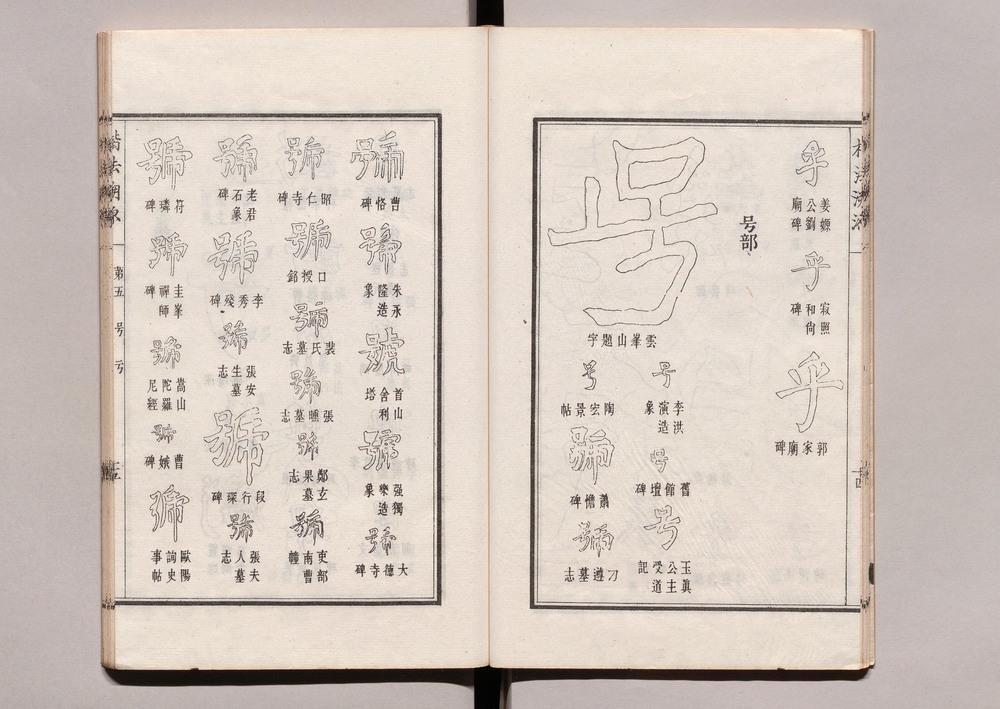 乎
姜嫄
公劉
廟碑
乎
寂照
和尙
碑
乎
郭家廟碑
号部
号
雲峯山題字
号
李洪
演造
象
号
舊館壇碑
号
玉眞
公主
受道
記
号
陶宏景帖
號
蕭憺碑
號
刁遵墓志
號
曹恪碑
號
朱永
隆造
象
號
首山
舍利
塔
號
强獨
樂造
象
號
大德寺碑
號
昭仁寺碑
號
口授銘
號
裴氏墓志
號
張墓志
號
鄭玄
果墓
志
號
吏部
南曹
幢
號
老君
石象
碑
號
李秀殘碑
號
張安
生墓
志
號
段行琛碑
號
張夫
人墓
志
號
符璘碑
號
圭峯
禪師
碑
號
嵩山
陀羅
尼經
號
曹娥碑
號
歐陽
詢史
事帖
第五 号 亏